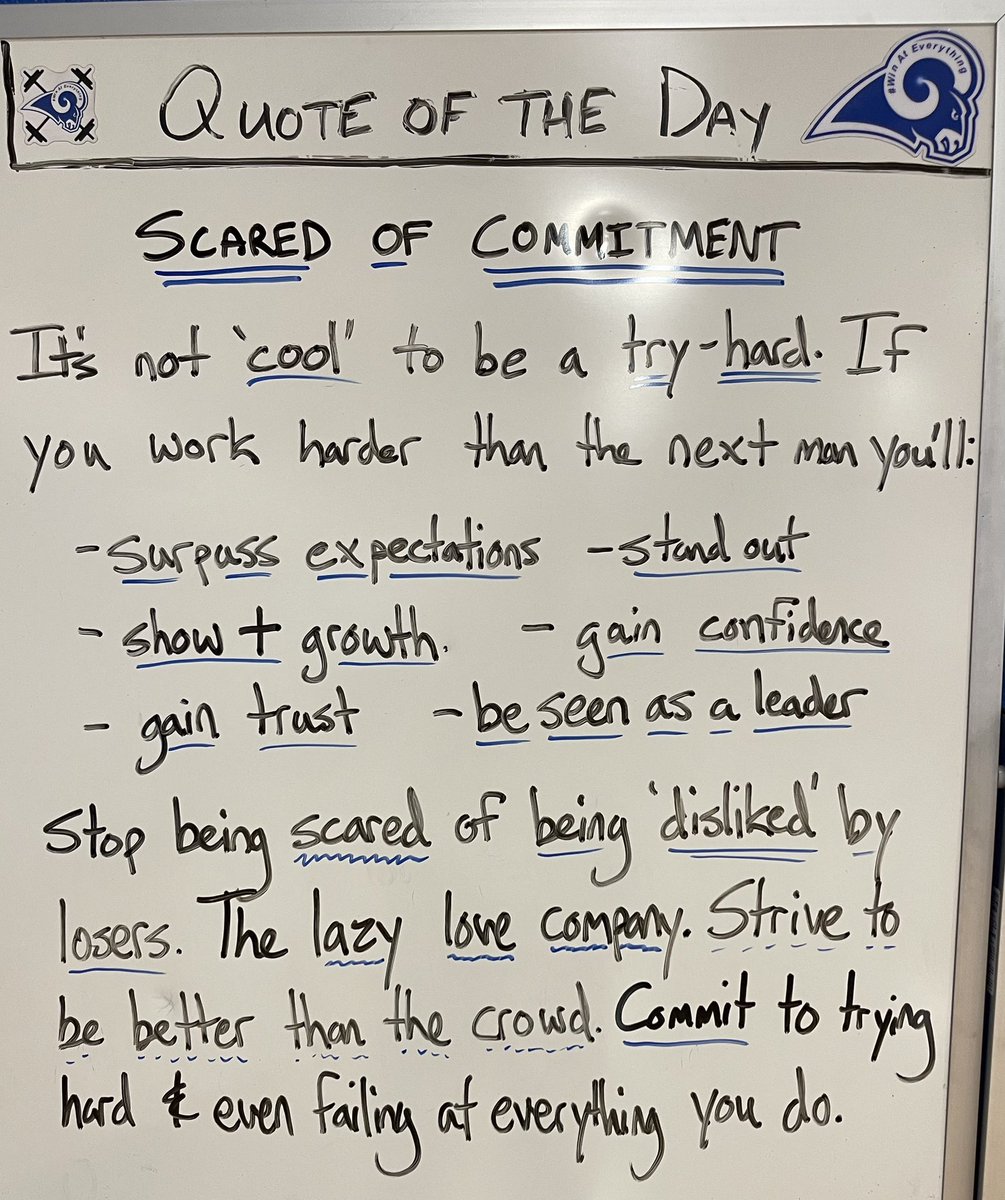 QUOTE OF THE DAY
#Win At Everything
SCARED OF COMMITMENT
It's not 'cool' to be a try-hard. If
you work harder than the next man you'll:
- surpass expectations - stand out
- show + growth. - gain confidence
- gain trust - be seen as a leader
Stop being scared of being 'disliked' by
losers. The lazy love company. Strive to
be better than the crowd. Commit to trying
hard & even failing at everything you do.